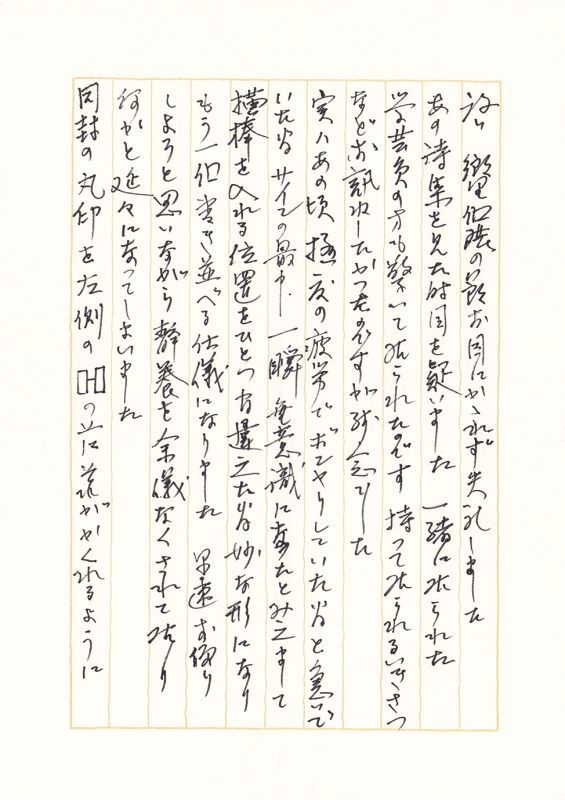 失礼しました
あの詩集を見た時目を疑いました 一緒に居られた
学芸員の方も驚いて居られたのです 持って居られるいきさつ
などお訊ねしたかったのですが残念でした
実ハあの頃 極度の疲労でボンヤリしていた為と急いで
いた為サインの最中 一瞬 無意識になったとみえまして
横棒を入れる位置をひとつ間違えた為妙な形になり
もう一個書き並べる仕儀になりました 早速お便り
しようと思いながら静養を余儀なくされて居り
何かと延々になってしまいました
同封の丸印を左側の の上に かくれるように